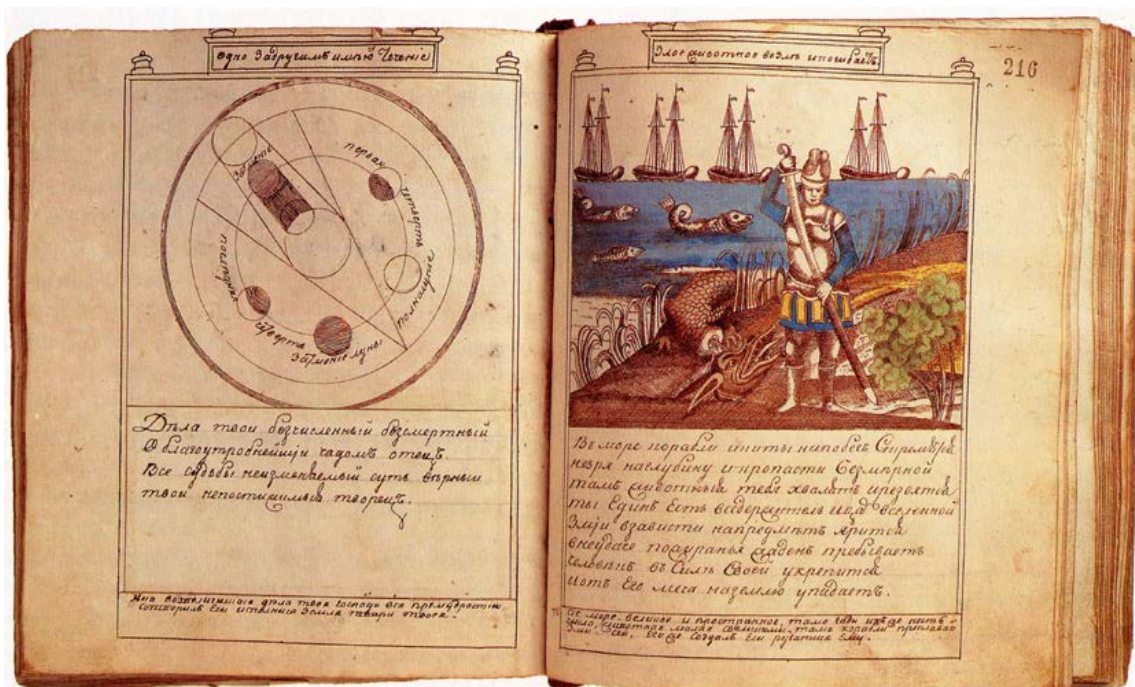 одно задругимъ имѣю теченіе
затмѣніе
первая
четверть
полнолуніе
затмѣніе луны
четверть
Дѣла твои безчисленный безсмертный
О благоутробнейшіи чадомъ отецъ.
Все судьбы неизменяемый суть вѣрныи
твои непостижимыя творецъ.
Яко возвеличишася дѣла твоя господи вся премудростію
сотворилъ еси исполнися земля твари твоея.
Злое животное возлѣ погибаетъ
216
Въ море корабли
незря наглубину и пропасти безмѣрной
тамъ животныя тебя хвалятъ
ты Единъ Есть вседержитель вселенной
Зміи взависти напредметъ ярится
внеудаче пожиранья гладенъ пребываетъ
человекъ въ Силѣ Своей укрепится
иотъ Его меча наземлю упадаетъ.
море великое и пространное, тамо гади ихже нѣсть
числа, животная малая съ великими, тамо корабли преплаваютъ
Змій сей, Егоже создалъ Еси ругатися ему.